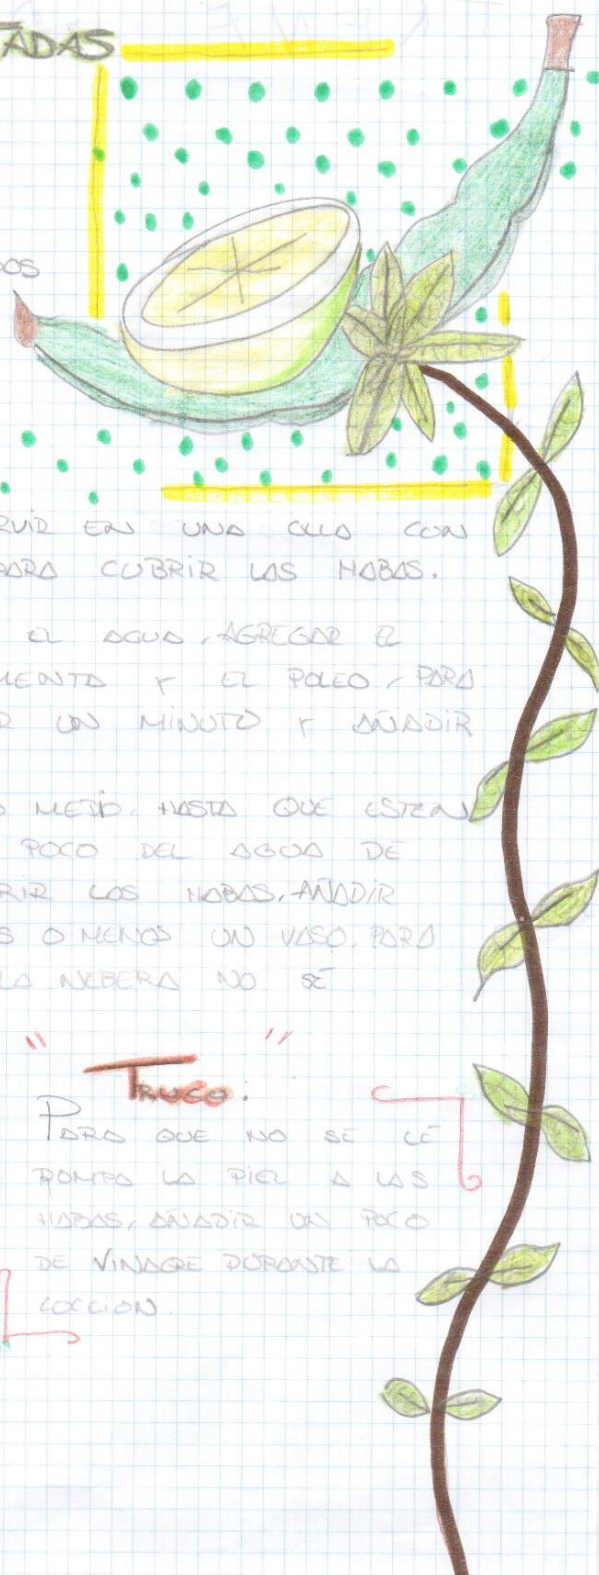 TADAS
DOS
RVIR EN UNA OLLA CON
PARA CUBRIR LAS HABAS.
EL AGUA, AGREGAR EL
MENTA Y EL POLEO, PARA
R UN MINUTO Y AÑADIR
O MEDIO. HASTA QUE ESTEN
POCO DEL AGUA DE
RIR LAS HABAS. AÑADIR
S O MENOS UN VASO. PARA
LA NEBERA NO SÉ
" "
TRUCO:
PARA QUE NO SE LE
ROMPA LA PIEL A LAS
HABAS, AÑADIR UN POCO
DE VINAGRE DURANTE LA
COCCION.